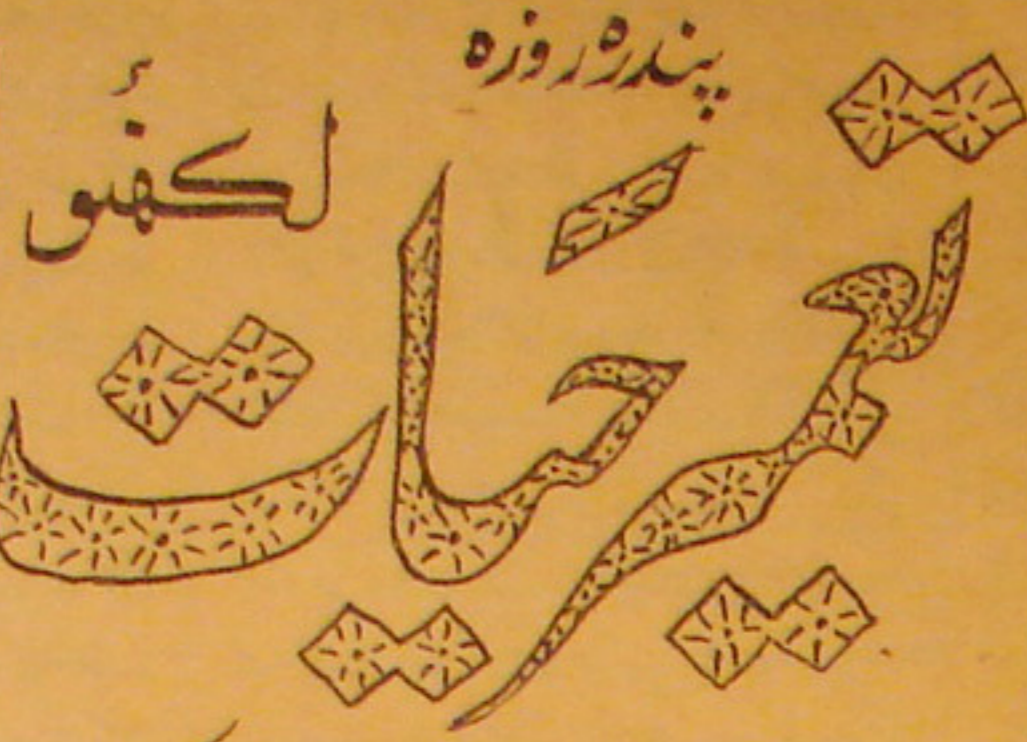 پندرہ روزہ
تعمیر حَیات
لکھنؤ